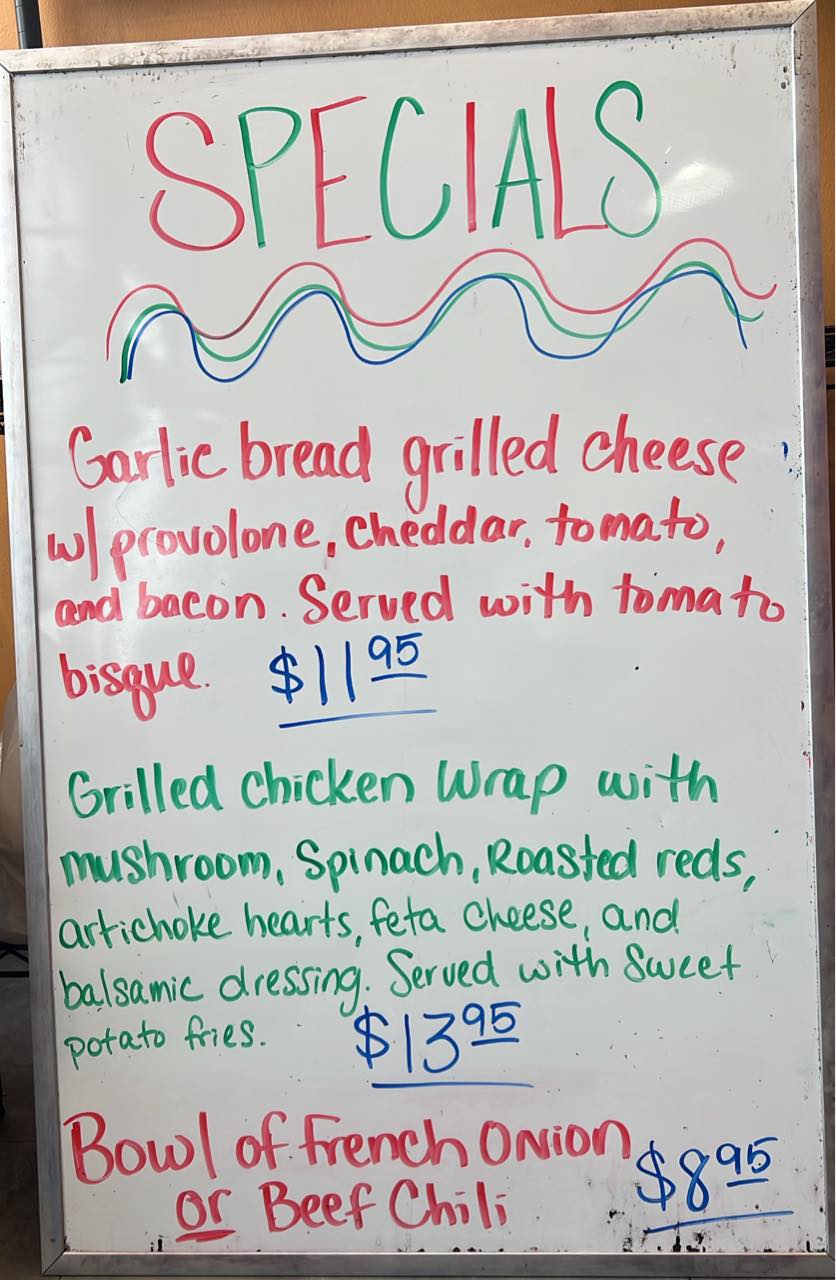 SPECIALS
Garlic bread grilled cheese
w/ provolone, cheddar, tomato,
and bacon. Served with tomato
bisque. $11 95
Grilled chicken wrap with
mushroom, Spinach, Roasted reds,
artichoke hearts, feta cheese, and
balsamic dressing. Served with Sweet
potato fries. $13 95
Bowl of French Onion
or Beef Chili $8 95